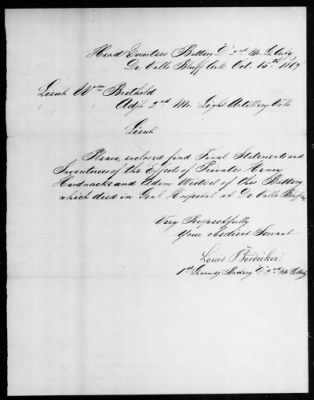 Head Quarters Battery D 2nd Mo. L. Arty
De Valls Bluff Ark. Oct. 15th
Lieut Wm Berthold
Adjt 2nd Mo Light Artillery Vols
Lieut
Please, enclosed find Final Statements and
Inventories of the Effects of Privates Henry
and Adam of this Battery
which died in Genl Hospital at De Valls Bluff
Very Respectfully
Your obedient Servant
Louis
1st Lieut Battery D 2nd Mo